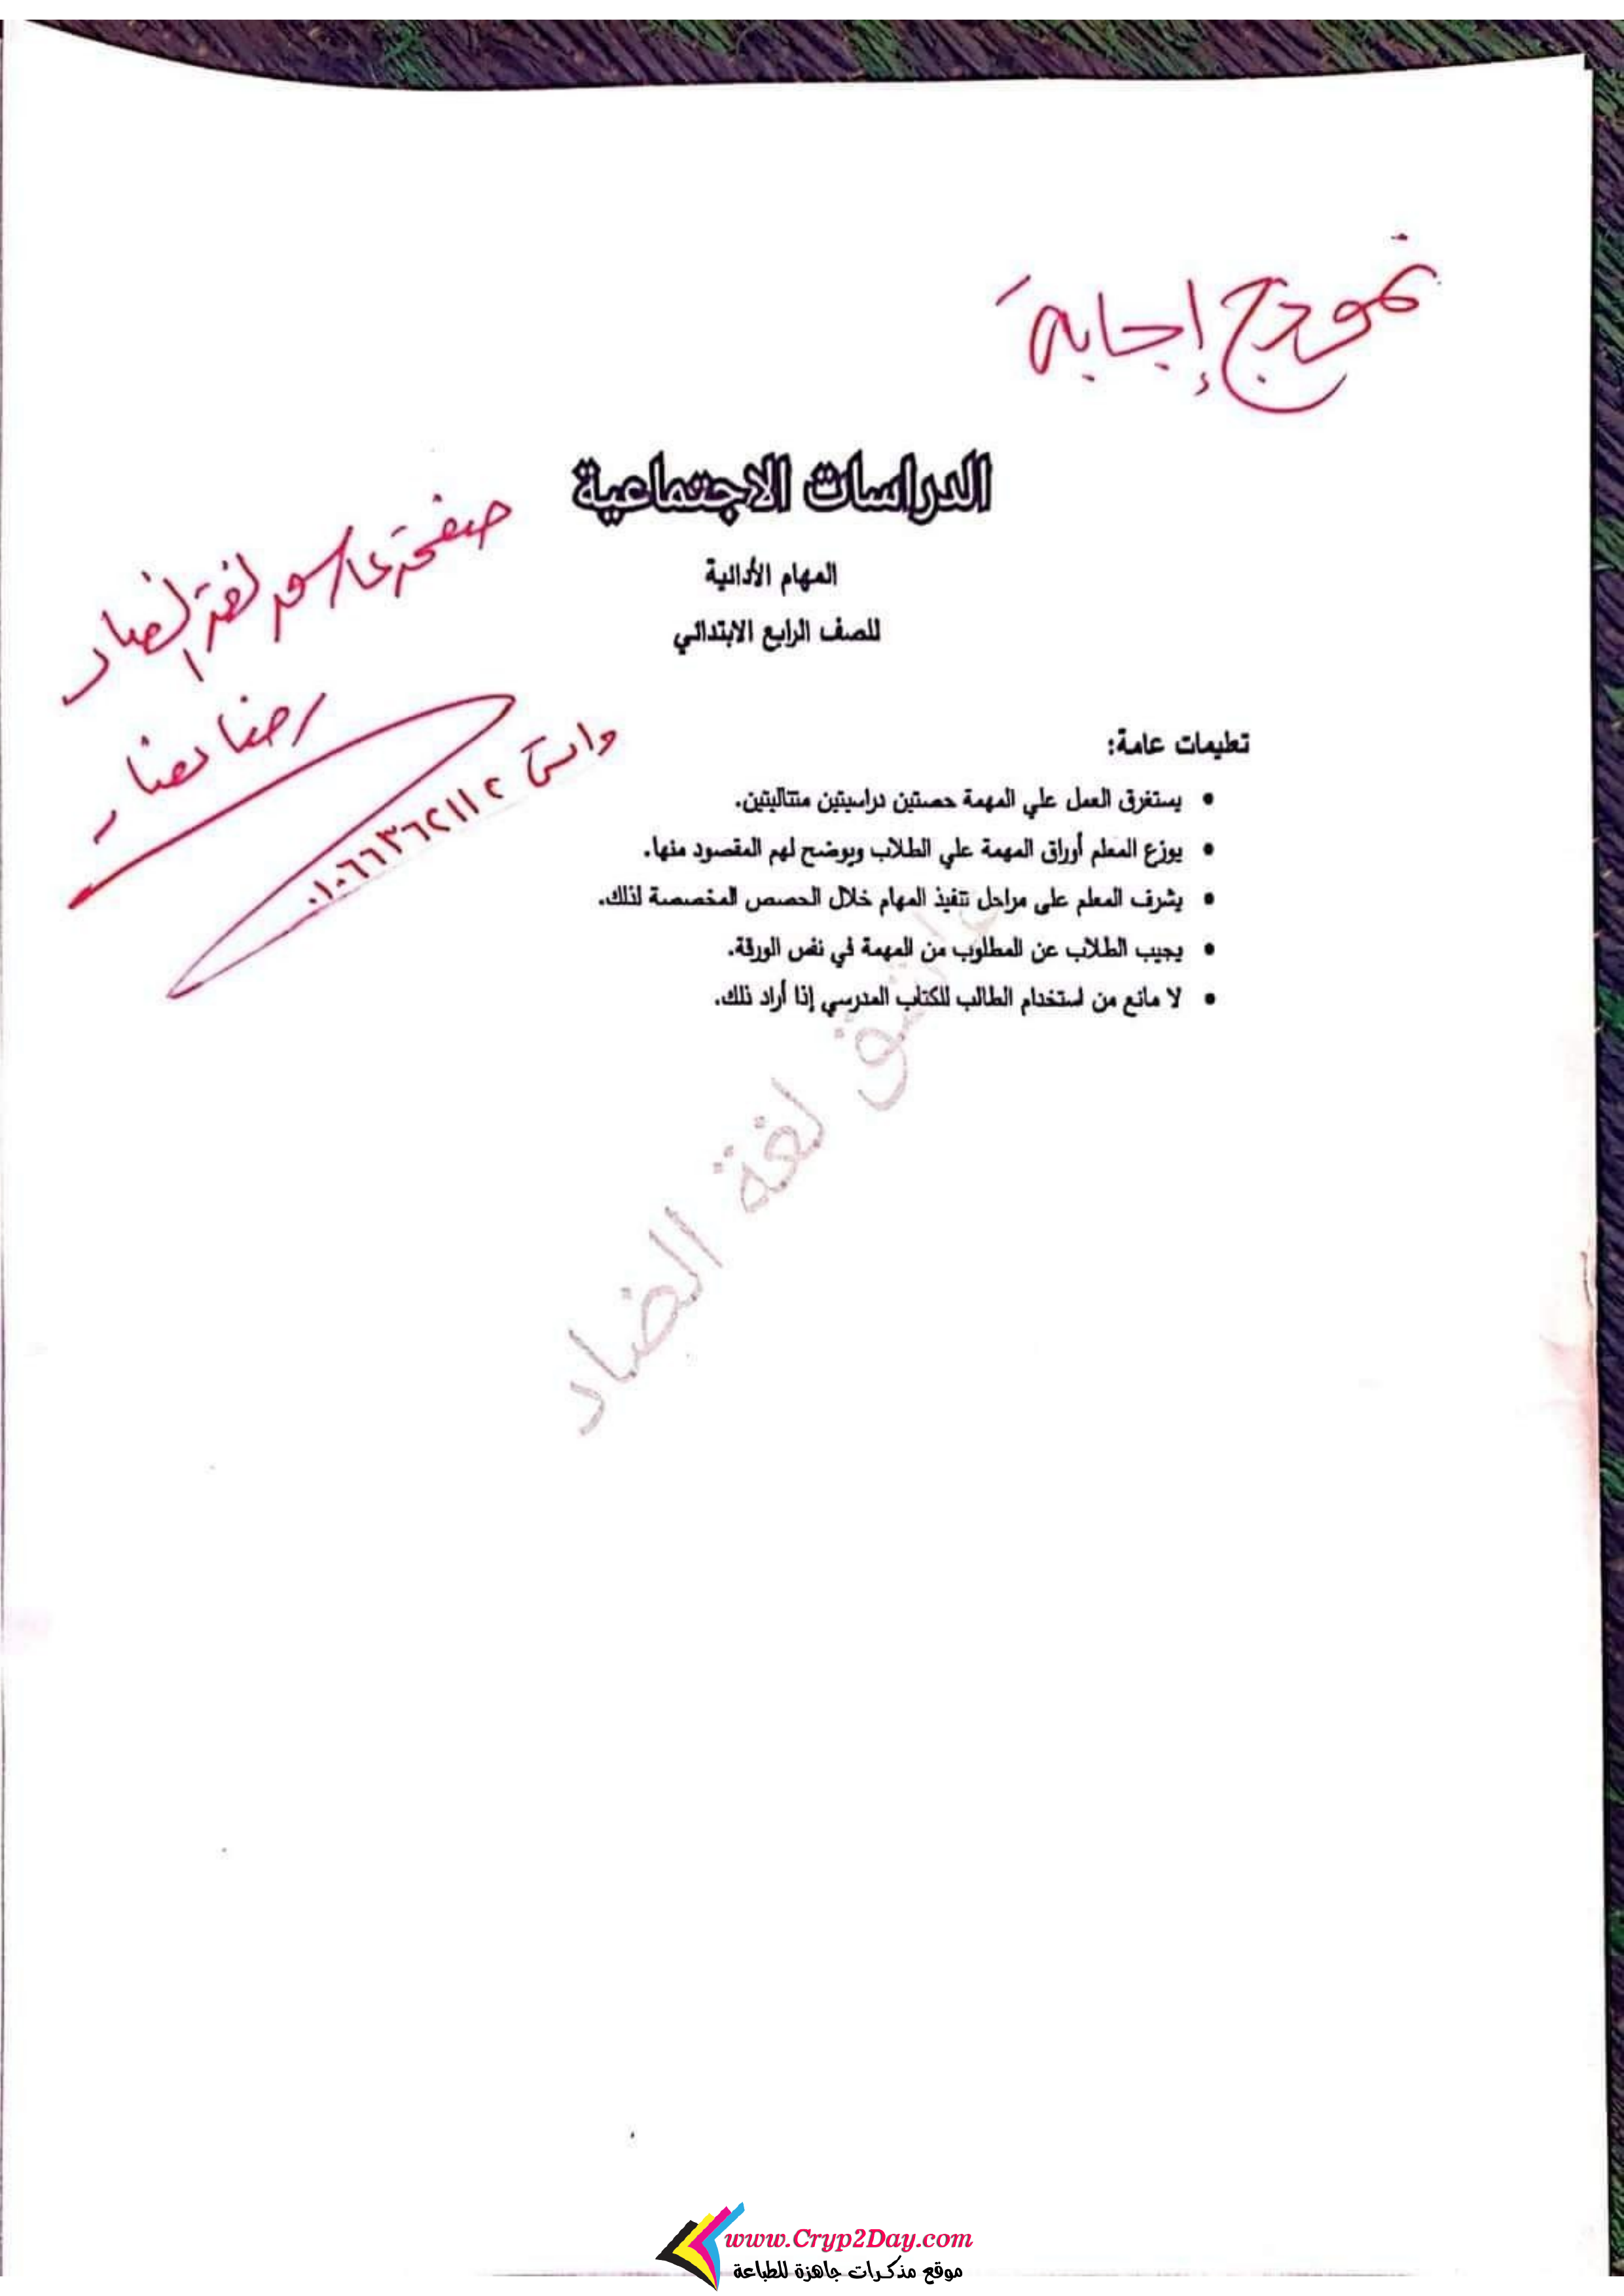 نموذج إجابة
الدراسات الاجتماعية
المهام الأدائية
للصف الرابع الابتدائي
صفحة عاشق لغة الضاد
رضا نصار
واتس ٠١٠٦٦٣٦٢١١٢
تعليمات عامة:
• يستغرق العمل علي المهمة حصتين دراسيتين متتاليتين.
• يوزع المعلم أوراق المهمة علي الطلاب ويوضح لهم المقصود منها.
• يشرف المعلم على مراحل تنفيذ المهام خلال الحصص المخصصة لذلك.
• يجيب الطلاب عن المطلوب من المهمة في نفس الورقة.
• لا مانع من استخدام الطالب للكتاب المدرسي إذا أراد ذلك.
عاشق لغة الضاد
www.Cryp2Day.com
موقع مذكرات جاهزة للطباعة